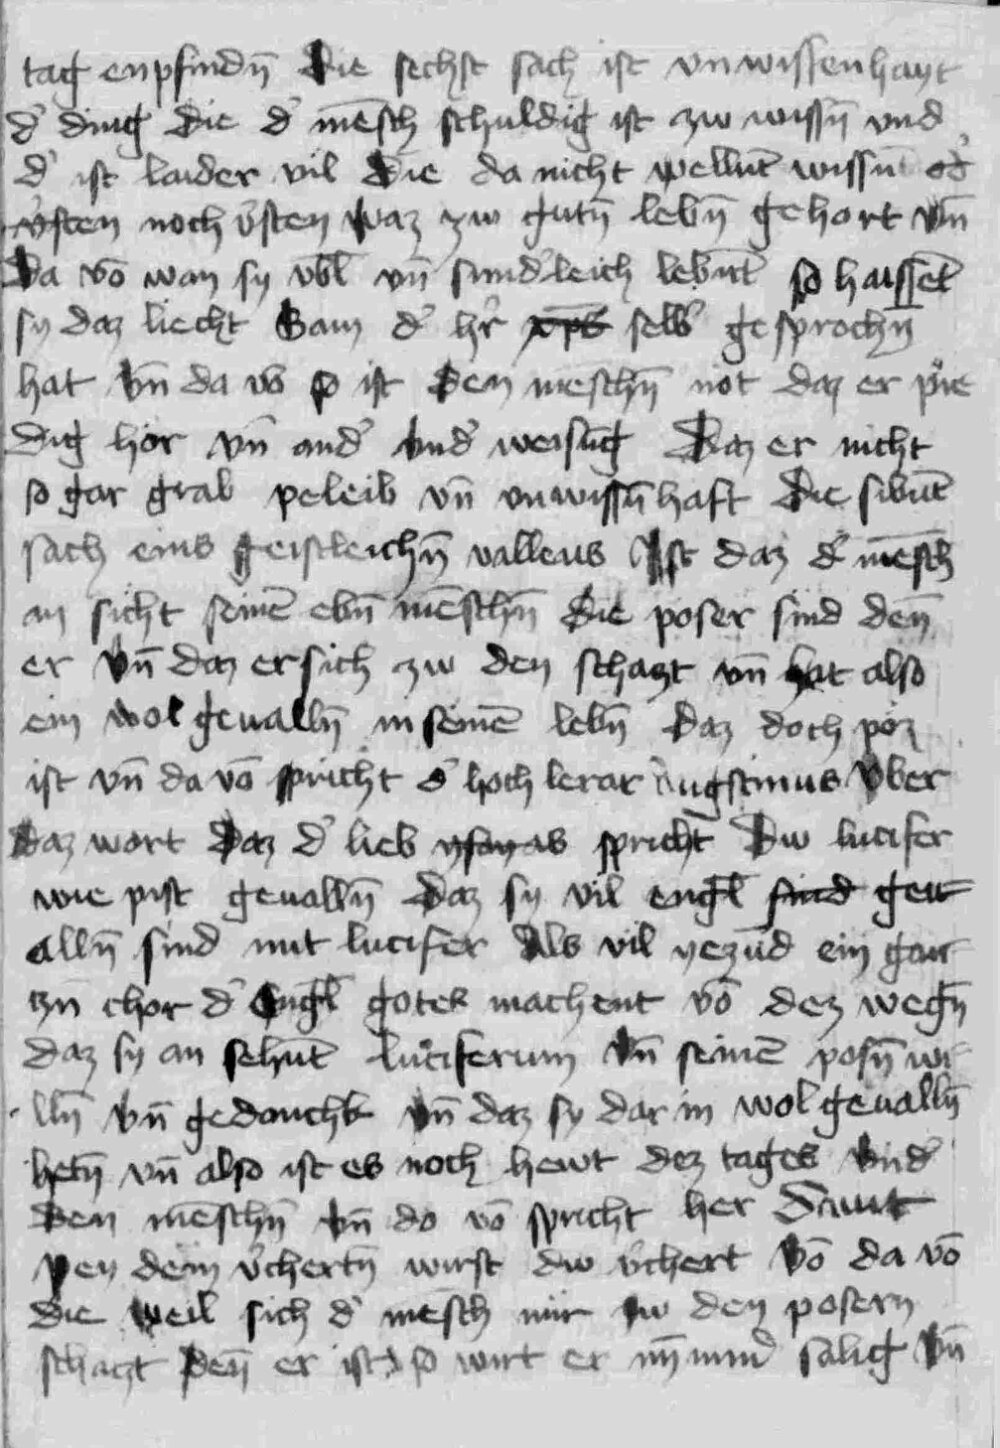 tag enpfindn̄ Die sechst sach ist vnwissenhayt
d' ding Die d' mēsch schuldig ist zw wissn̄ vnd
d' ist laider vil Die da nicht wellnt wissn̄
noch v'sten waz zw gutn̄ lebn̄ gehort vn̄
Da vō wan sy vbl vn̄ sund'leich lebn̄t so haissent
sy daz liecht Sam d' h'r xp̄s selb' gesprochn̄
hat vn̄ da vō so ist Dem meschn̄ not daz er pre
dig hör vn̄ and' vnd' weisūg Daz er nicht
so gar grab peleib vn̄ vnwissn̄haft Die sibn̄t
sach eins geistleichn̄ vallens Ist daz d' mēsch
an sicht seinē ebn̄ mēschn̄ Die poser sind den̄
er vn̄ daz er sich zw den schaczt vn̄ hat also
ein wol geualln̄ in seinē lebn̄ Daz doch pöz
ist vn̄ da vō spricht d' hoch lerar Augstinus vber
Daz wort Daz d' lieb ysayas spricht Dw lucifer
wie pist geualln̄ Daz sy vil engl sind geu
alln̄ sind mit lucifer Als vil yezūd ein gan
tzn̄ chor d' Engl gotes machent vō dez wegn̄
daz sy an sehn̄t luciferum vn̄ seinē posn̄ wi
lln̄ vn̄ gedanchk vn̄ daz sy dar in wol geualln̄
hetn̄ vn̄ also ist es noch hewt dez tages vnd'
Den mēschn̄ vn̄ do vō spricht her Dauit
pey dem v'chertn̄ wirst dw v'chert vō da vō
die weil sich d' mēsch nür zw den posern
schaczt Den̄ er ist so wirt er nȳmmd' sälig vn̄